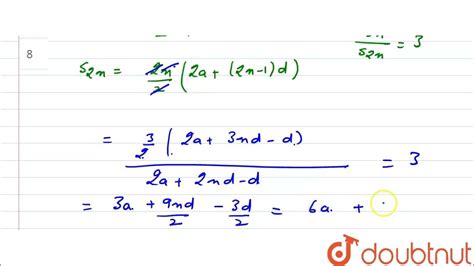 8
S2n = 3
S2n = 2n/2 (2a + (2n-1)d)
= 3/2 (2a + 3nd - d) / 2a + 2nd - d = 3
= 3a + 9nd/2 - 3d/2 = 6a +
doubtnut